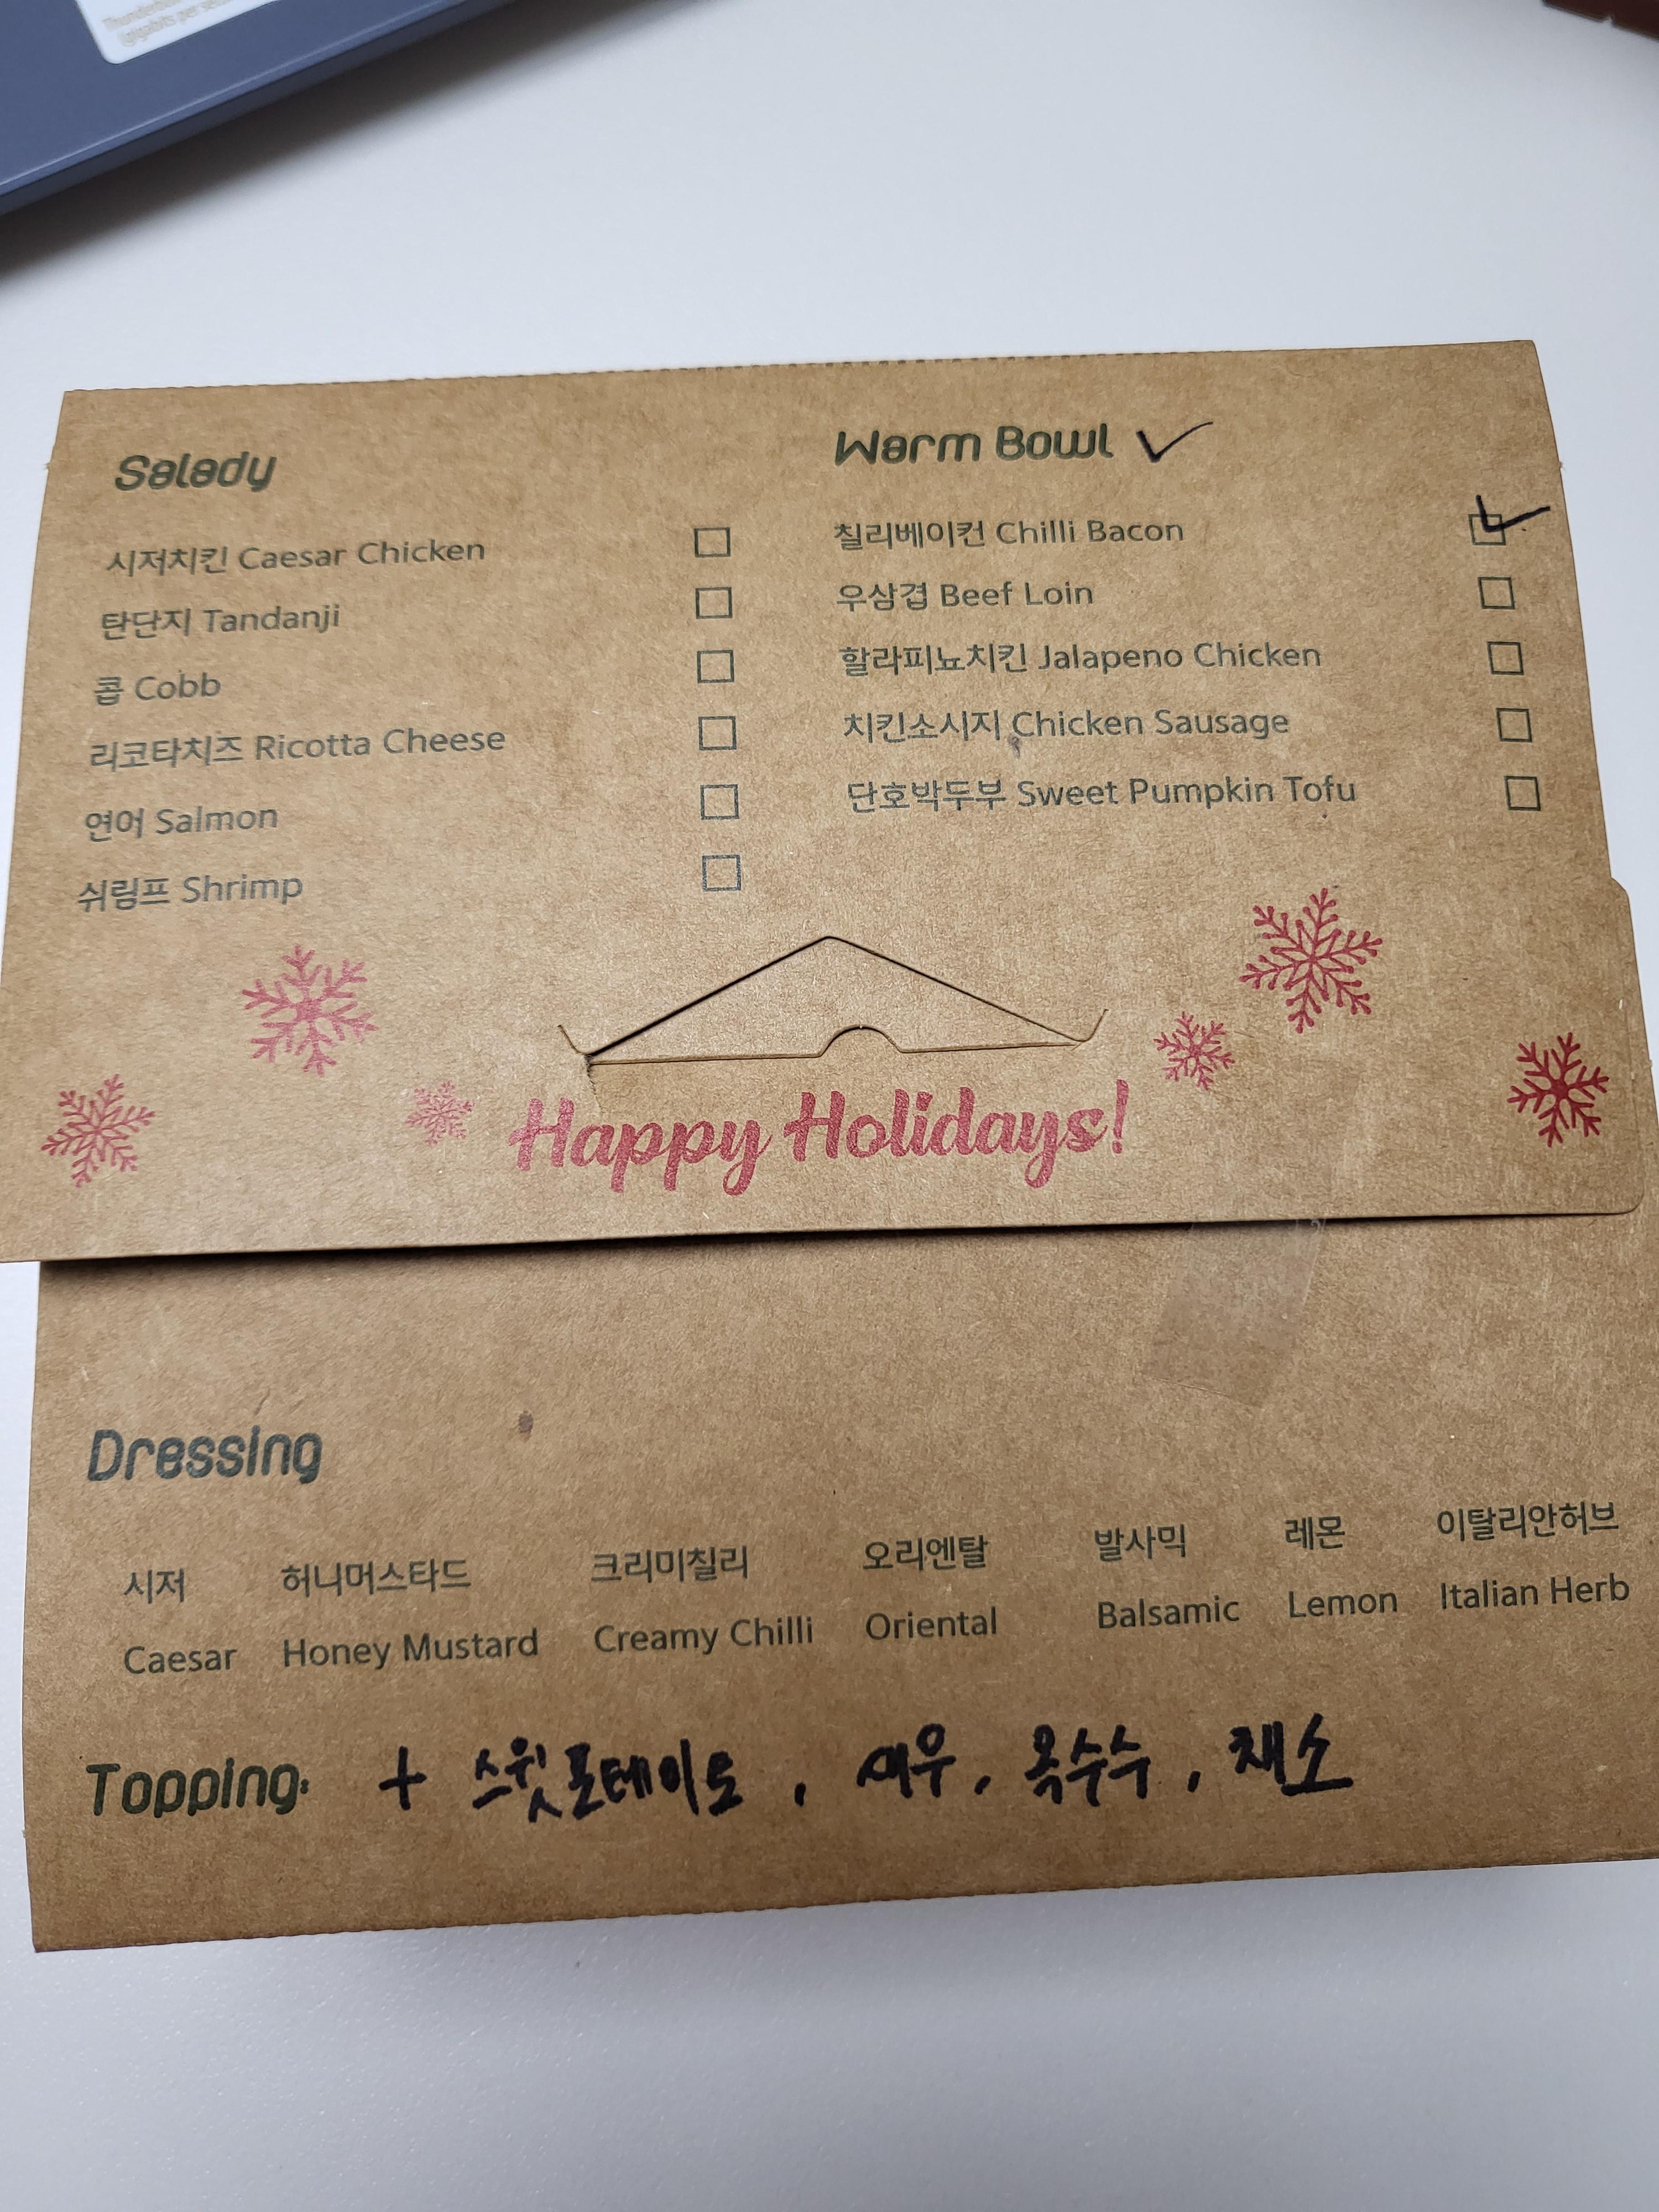 Salady
시저치킨 Caesar Chicken
탄단지 Tandanji
콥 Cobb
리코타치즈 Ricotta Cheese
연어 Salmon
쉬림프 Shrimp
Warm Bowl
칠리베이컨 Chilli Bacon
우삼겹 Beef Loin
할라피뇨치킨 Jalapeno Chicken
치킨소시지 Chicken Sausage
단호박두부 Sweet Pumpkin Tofu
Happy Holidays!
Dressing
시저 허니머스타드 크리미칠리 오리엔탈 발사믹 레몬 이탈리안허브
Caesar Honey Mustard Creamy Chilli Oriental Balsamic Lemon Italian Herb
Topping: + 스윗포테이토, 새우, 옥수수, 채소